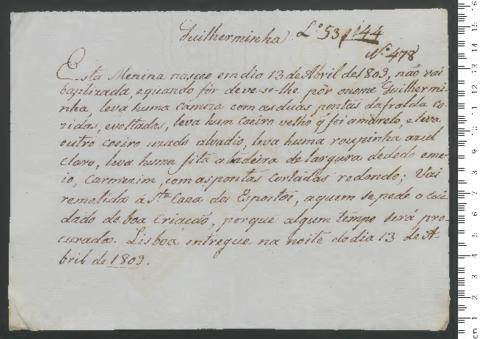 Guilherminha L.º 53 f 144
N.º 478
Esta Menina nasceo em dia 13 de Abril de 1809, não vai
baptizada, e quando for deve-se-lhe pôr o nome Guilhermi-
nha, leva huma camiza com as duas pontas da fralda co-
zidas, e voltadas, leva hum coeiro velho q̃ foi amarelo, e leva
outro coeiro uzado alvadio, leva huma roupinha azul
claro, leva huma fita a badeira de largura de dedo eme-
io, Carmezim, com as pontas cortadas redondo; Vai
remetida a S.ta Caza dos Espostos, a quem se pede o cui-
dado de boa Criacaõ, porque algum tempo será pro-
curada. Lisboa entregue na noite do dia 13 de A-
bril de 1809.
cm